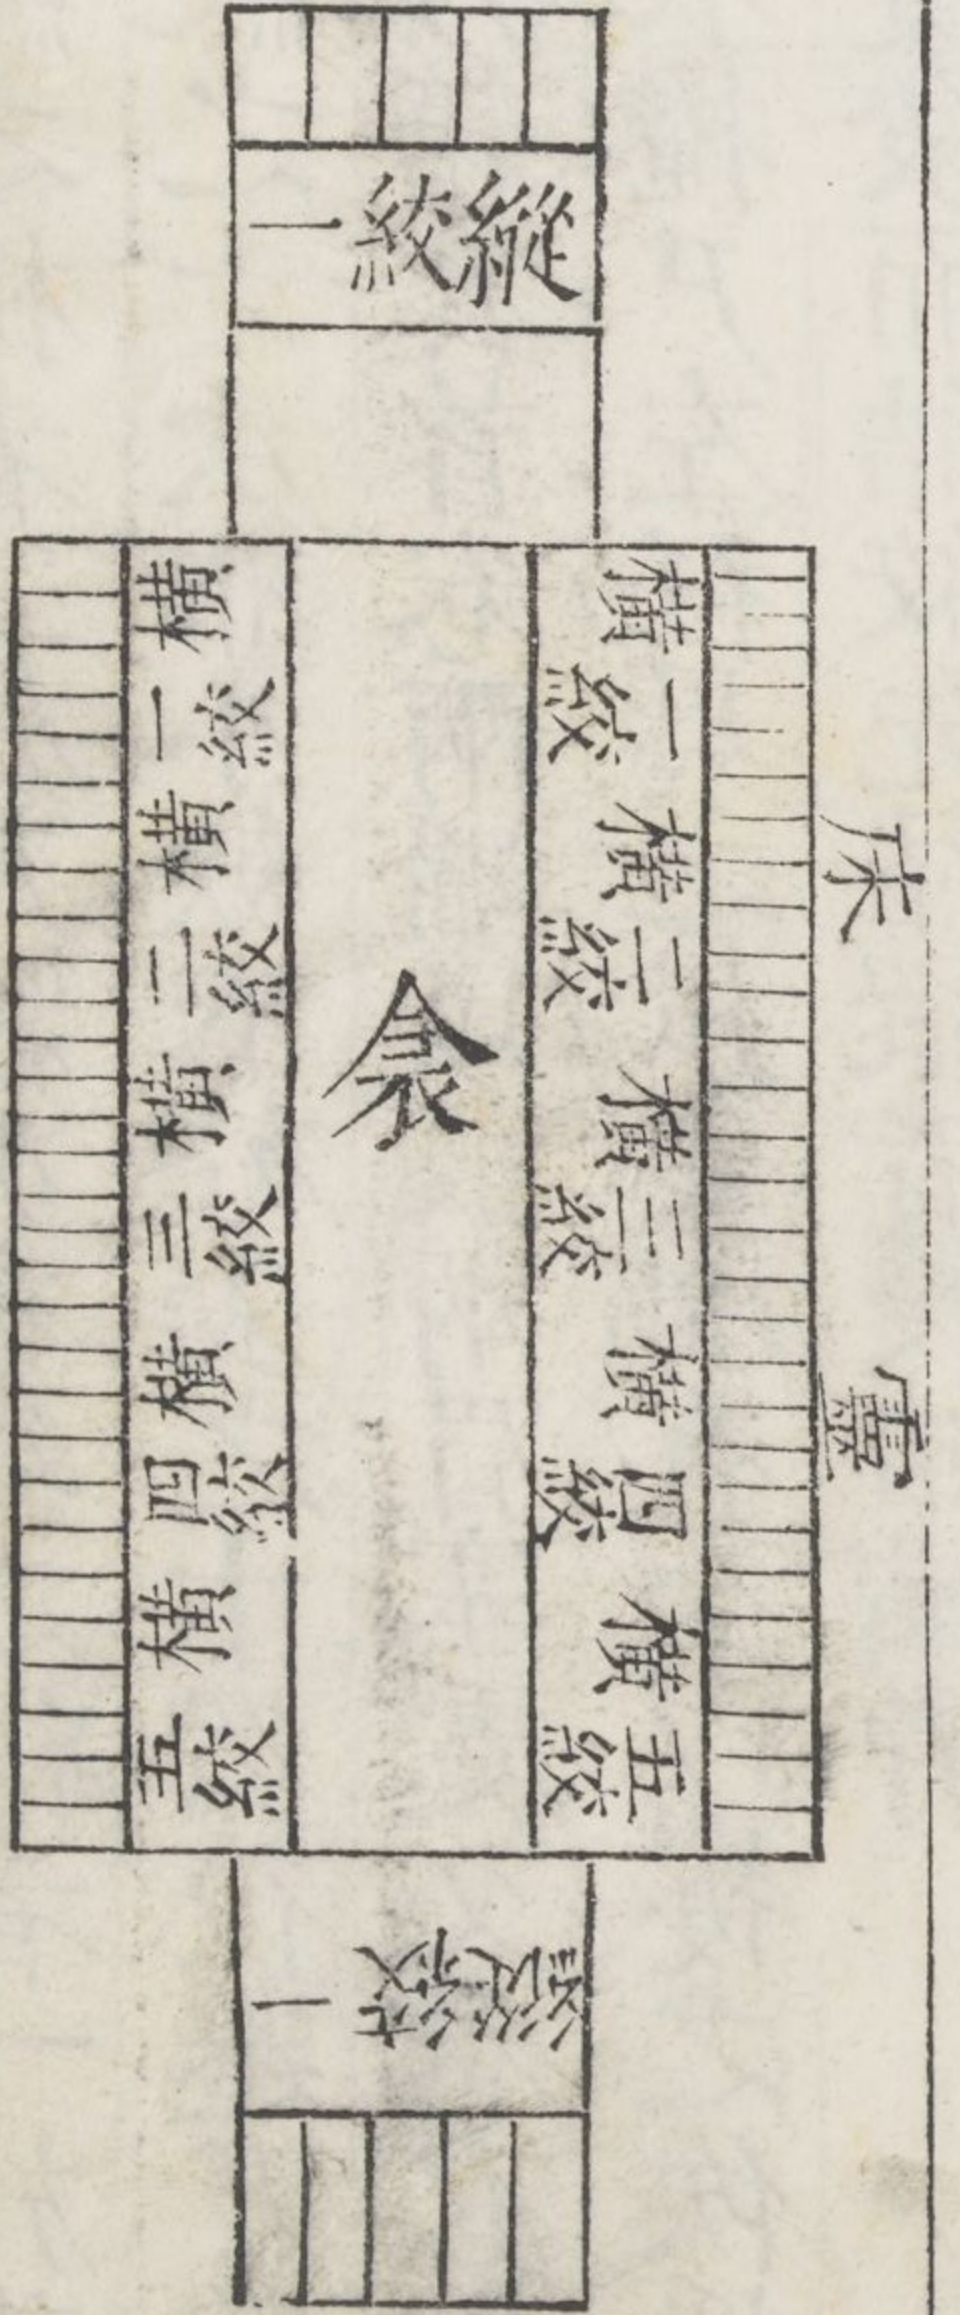 縱絞一
橫絞一
橫絞二
橫絞三
橫絞四
橫絞五
衾
橫絞一
橫絞二
橫絞三
橫絞四
橫絞五
縱絞一
靈床